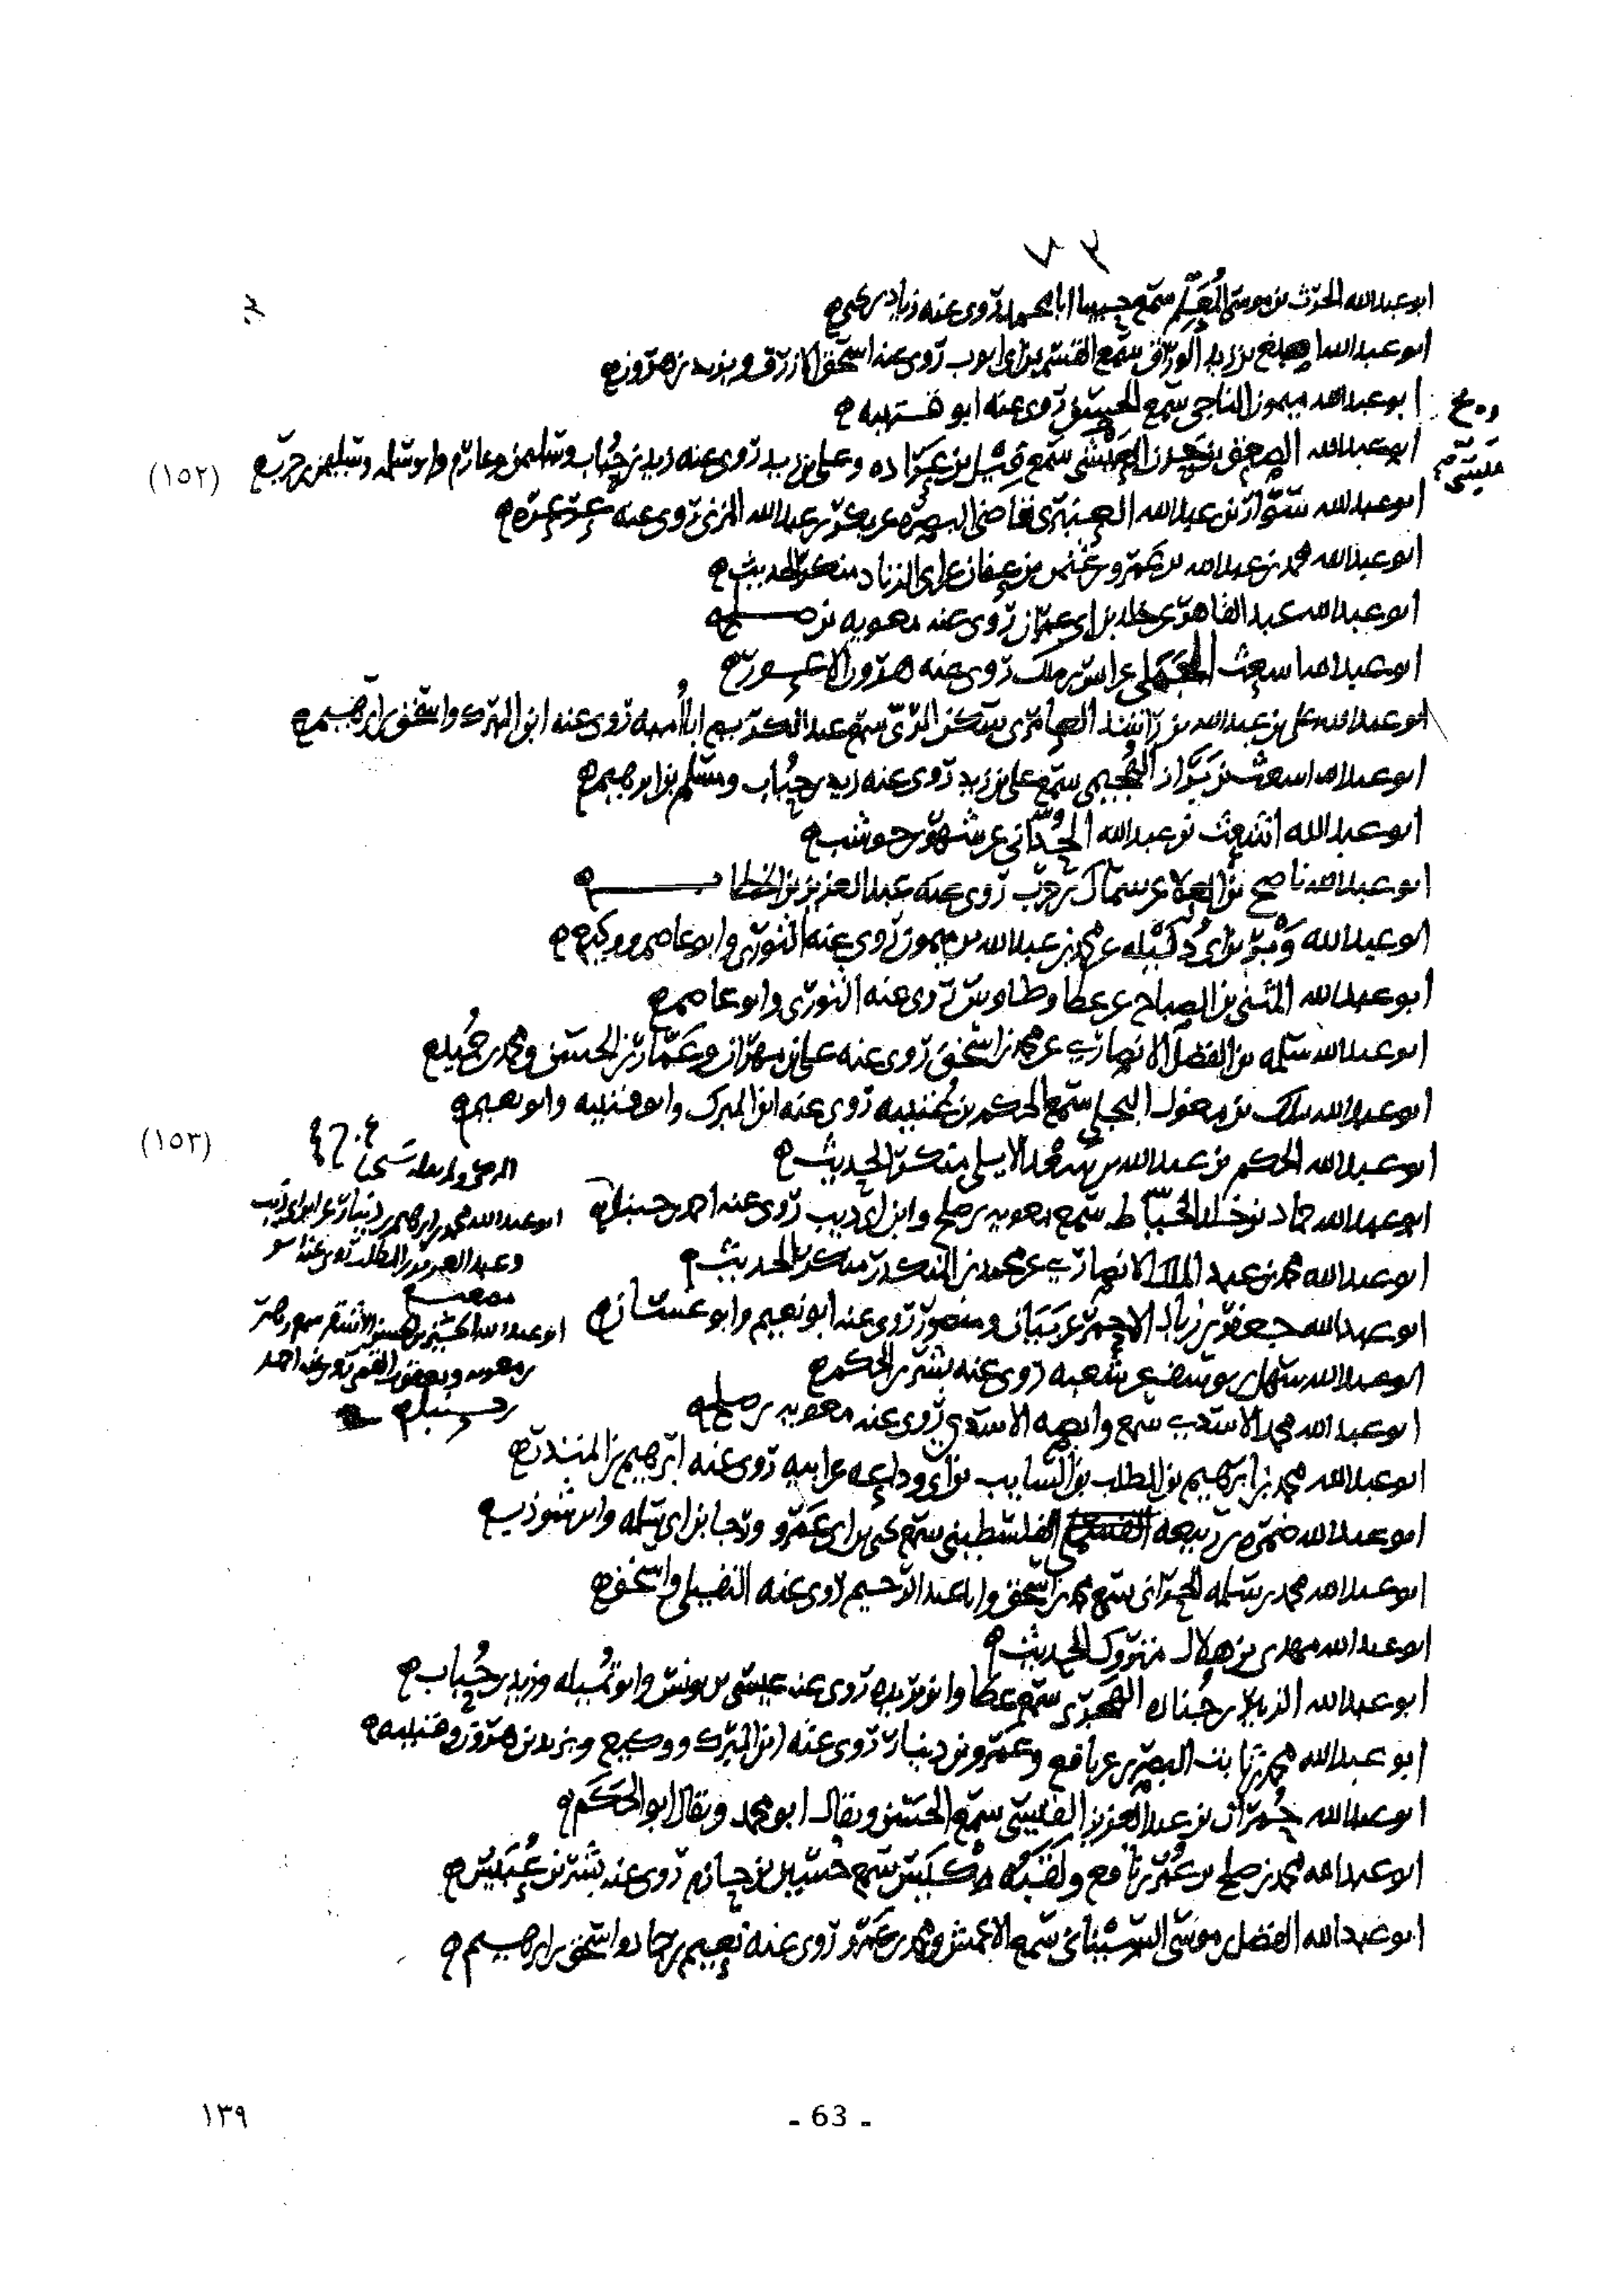 ٦٣
ابو عبدالله الحرث بن موسى المعلم سمع حبيبا ابا محمد روى عنه زياد بن يحيى
ابو عبدالله اصبغ بن زيد الوراق سمع القسم بن ابي ايوب روى عنه اسحق الازرق ويزيد بن هرون
ابو عبدالله ميمون الناجي سمع الحسن روى عنه ابو قتيبه
ابو عبدالله الصعق بن حزن العيشي سمع فيل بن عراده وعلي بن زيد روى عنه زيد بن حباب وسليمن وعارم وابو سلمه وسليمن بن حرب
(١٥٢)
ابو عبدالله سوار بن عبدالله العنبري قاضي البصره عن بكر بن عبدالله المزني روى عنه عرعره
ابو عبدالله محمد بن عبدالله بن عمرو بن عثمن بن عفان عن ابي الزناد منكر الحديث
ابو عبدالله عبد القاهر عن خالد بن ابي عمران روى عنه معويه بن صلح
ابو عبدالله اسعث عن انس بن ملك روى عنه هرون الاعور
ابو عبدالله علي بن عبدالله بن راشد العامري سكن الري سمع عبد الكريم ابا اميه روى عنه ابن المبرك واسحق بن ابرهيم
ابو عبدالله اسعث بن براز الهجيمي سمع علي بن زيد روى عنه زيد بن حباب ومسلم بن ابرهيم
ابو عبدالله اشعث بن عبدالله الحداني عن شهر بن حوشب
ابو عبدالله ناصح بن العلا عن سماك بن حرب روى عنه عبد العزيز بن الخطاب
ابو عبدالله وبر بن ابي دليله عن محمد بن عبدالله بن ميمون روى عنه الثوري وابو عاصم ووكيع
ابو عبدالله المثنى بن الصباح عن عطا وطاوس روى عنه الثوري وابو عاصم
ابو عبدالله سلمه بن الفضل الانصاري عن محمد بن اسحق روى عنه علي بن مهران وعمار بن الحسن ومحمد بن حميد
ابو عبدالله ملك بن مغول البجلي سمع الحكم بن عتيبه روى عنه ابن المبرك وابو قتيبه وابو نعيم
(١٥٣)
ابو عبدالله الحكم بن عبدالله بن سعد الايلي منكر الحديث
ابو عبدالله حماد بن خالد الخياط سمع معويه بن صلح وابن ابي ذيب روى عنه احمد بن حنبل
ابو عبدالله محمد بن ابرهيم بن دينار عن ابن ابي ذيب
وعبد العزيز بن المطلب روى عنه ابو
مصعب
ابو عبدالله محمد بن عبد الملك الانصاري عن محمد بن المنكدر منكر الحديث
ابو عبدالله جعفر بن زياد الاحمر عن بيان ومنصور روى عنه ابو نعيم وابو غسان
ابو عبدالله سهل بن يوسف عن شعبه روى عنه بشر بن الحكم
ابو عبدالله الحسين بن الحسن الاشقر سمع زهير
بن معويه ويعقوب القمي روى عنه احمد
بن حنبل
ابو عبدالله محمد الاسدي سمع وابصه الاسدي روى عنه معويه بن صلح
ابو عبدالله محمد بن ابرهيم بن المطلب بن السايب بن ابي وداعه عن ابيه روى عنه ابرهيم بن المنذر
ابو عبدالله ضمره بن ربيعه الفلسطيني سمع يحيى بن ابي عمرو ورجا بن ابي سلمه وابن شوذب
ابو عبدالله محمد بن سلمه الحراني سمع محمد بن اسحق وابا عبد الرحيم روى عنه النفيلي واسحق
ابو عبدالله مهدي بن هلال متروك الحديث
ابو عبدالله الزبير بن جناده الهجري سمع عطا وابن بريده روى عنه عيسى بن يونس وابو تميله وزيد بن حباب
ابو عبدالله محمد بن ثابت البصري عن نافع وعمرو بن دينار روى عنه ابن المبرك ووكيع ويزيد بن هرون وقتيبه
ابو عبدالله حمران بن عبد العزيز القيسي سمع الحسن ويقال ابو محمد ويقال ابو الحكم
ابو عبدالله محمد بن صلح بن عمر بن نافع ولقبه كبش سمع حسين بن حازم روى عنه بشر بن عبيس
ابو عبدالله الفضل بن موسى السيناني سمع الاعمش ومحمد بن عمرو روى عنه نعيم بن حماد واسحق بن ابرهيم
١٣٩
- 63 -